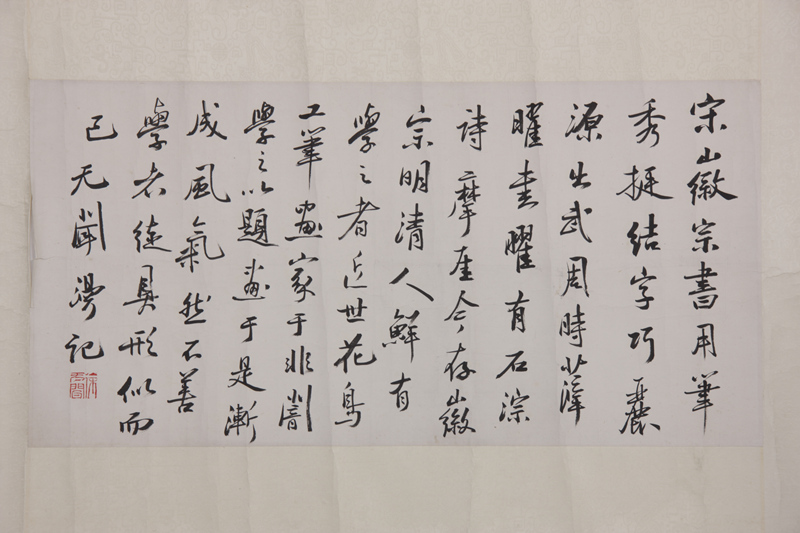 宋徽宗書用筆
秀挺結字巧麗
源出武周時薛
曜書曜有石淙
詩摩崖今存徽
宗明清人鮮有
學之者近世花鳥
工筆畫家于非闇
學之以題畫于是漸
成風氣然不善
學者徒具形似而
已无聞漫記
徐无聞